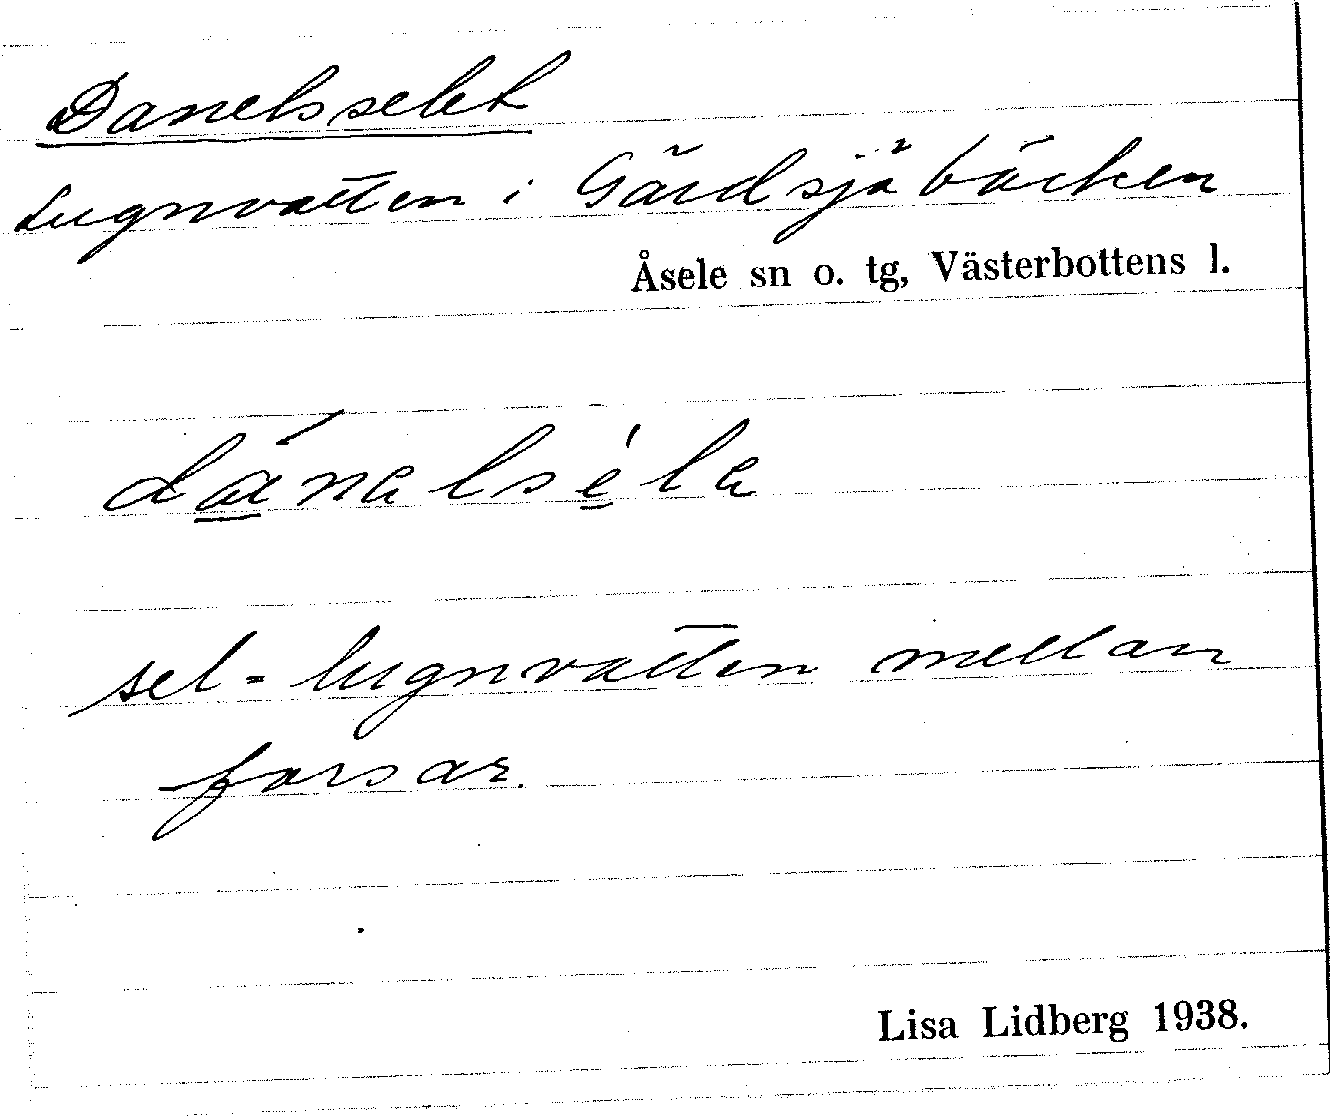 Danelsselet
Lugnvatten i Gärdsjöbäcken
Åsele sn o. tg, Västerbottens l.
dánalséla
sel = lugnvatten mellan
forsar.
Lisa Lidberg 1938.